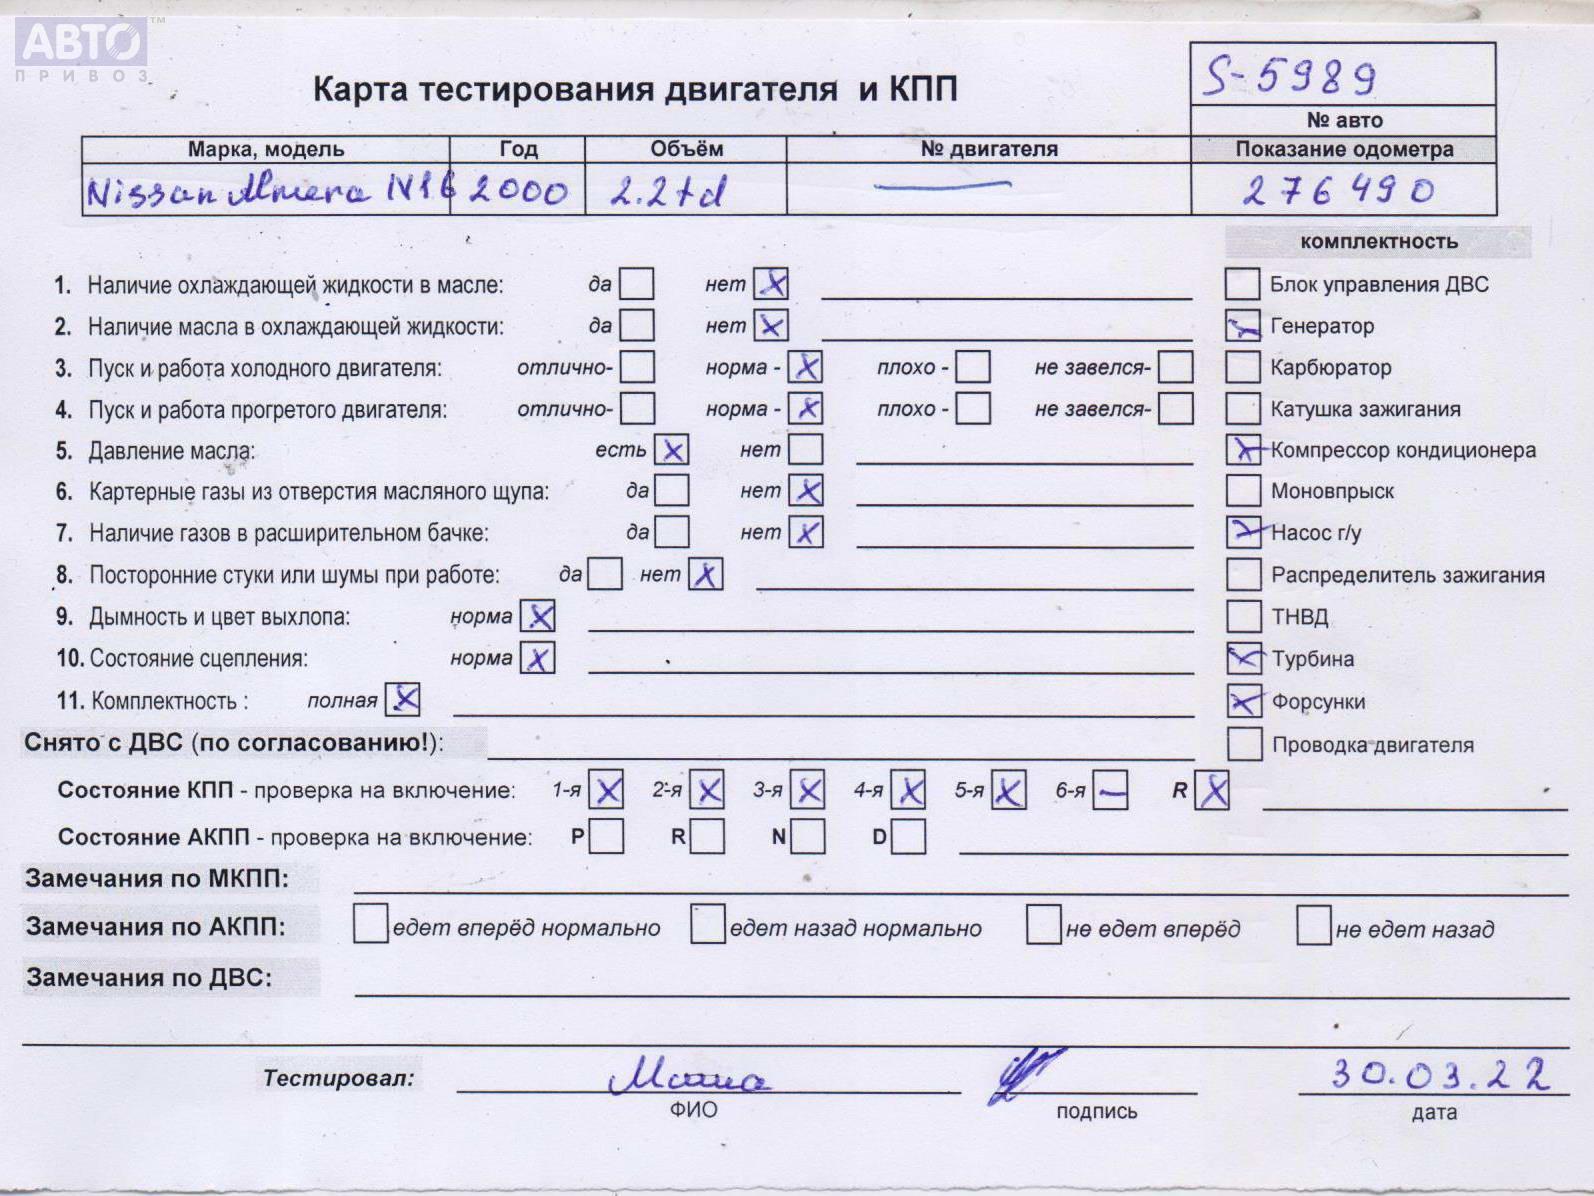 АВТО ™
ПРИВОЗ
Карта тестирования двигателя и КПП
S-5989
№ авто
Марка, модель Год Объём № двигателя Показание одометра
Nissan Almera N16 2000 2.2td — 276490
комплектность
1. Наличие охлаждающей жидкости в масле: да нет X Блок управления ДВС
2. Наличие масла в охлаждающей жидкости: да нет X X Генератор
3. Пуск и работа холодного двигателя: отлично- норма - X плохо - не завелся- Карбюратор
4. Пуск и работа прогретого двигателя: отлично- норма - X плохо - не завелся- Катушка зажигания
5. Давление масла: есть X нет X Компрессор кондиционера
6. Картерные газы из отверстия масляного щупа: да нет X Моновпрыск
7. Наличие газов в расширительном бачке: да нет X X Насос г/у
8. Посторонние стуки или шумы при работе: да нет X Распределитель зажигания
9. Дымность и цвет выхлопа: норма X ТНВД
10. Состояние сцепления: норма X X Турбина
11. Комплектность : полная X X Форсунки
Снято с ДВС (по согласованию!): Проводка двигателя
Состояние КПП - проверка на включение: 1-я X 2-я X 3-я X 4-я X 5-я X 6-я — R X
Состояние АКПП - проверка на включение: P R N D
Замечания по МКПП:
Замечания по АКПП: едет вперёд нормально едет назад нормально не едет вперёд не едет назад
Замечания по ДВС:
Тестировал: 30.03.22
ФИО подпись дата